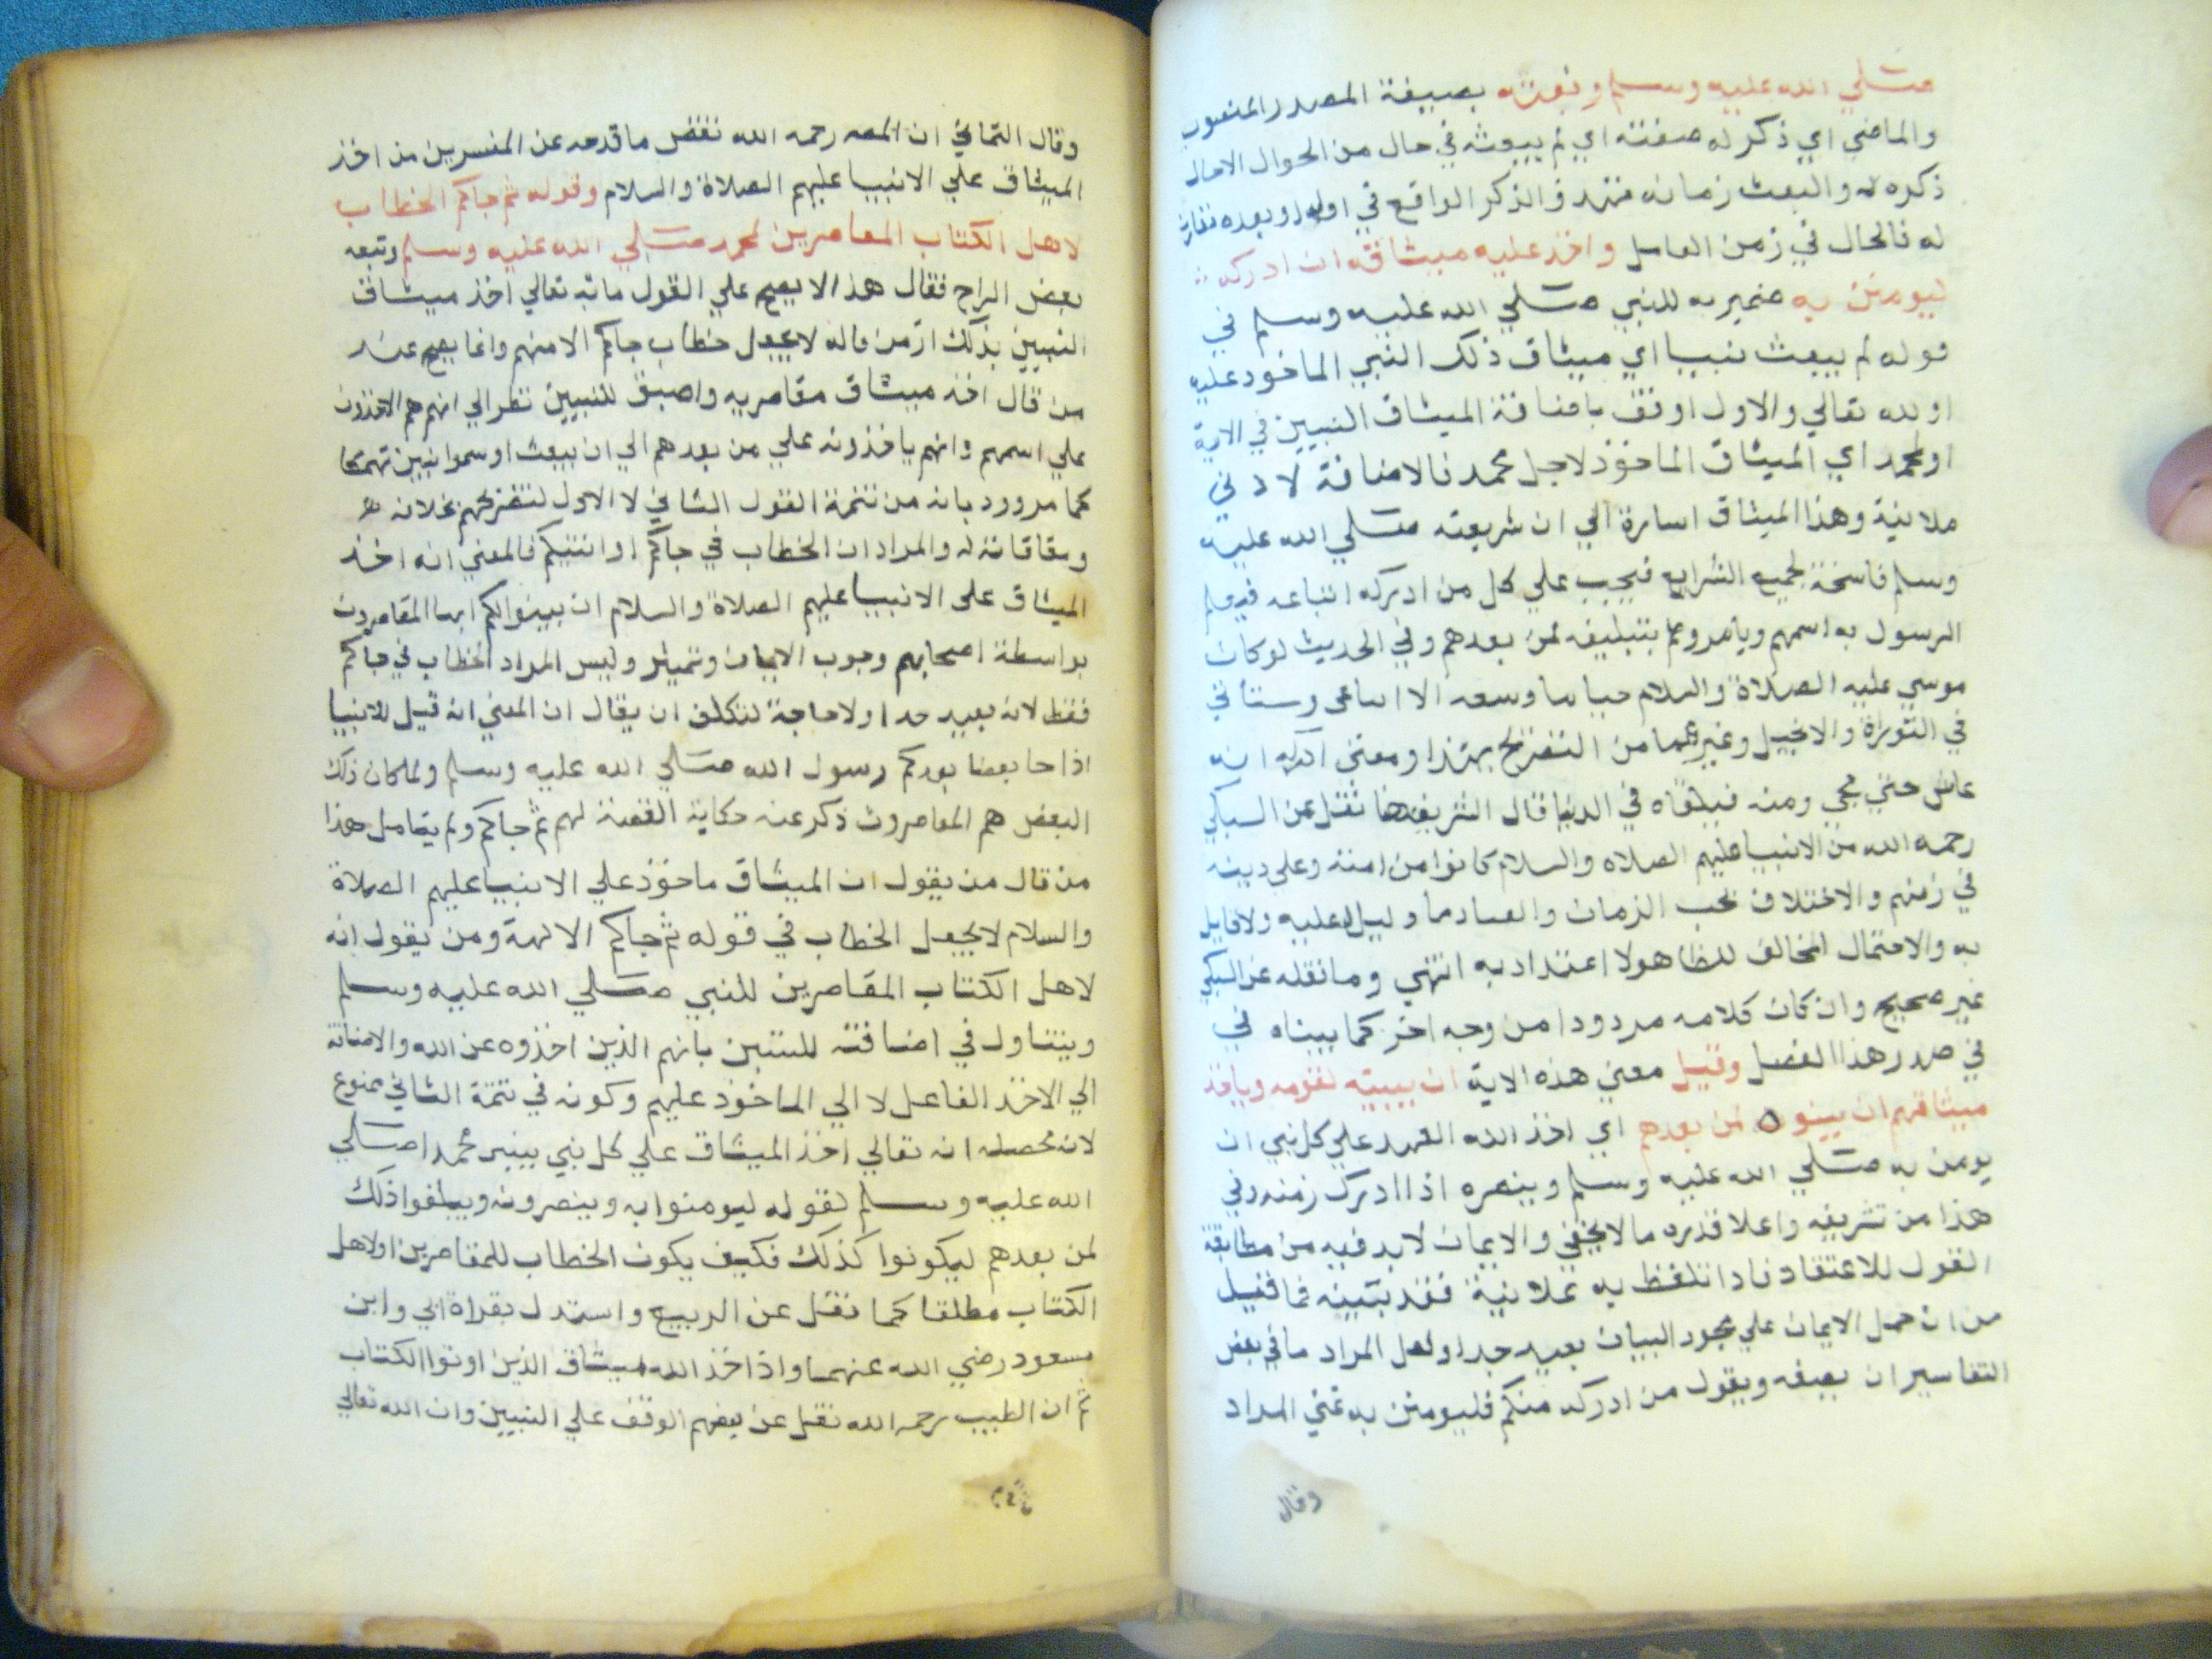 صلي الله عليه وسلم ونعته بصيغة المصدر المنصوب
والماضي اي ذكر له صفته اي لم يبعثه في حال من الحوال الاحال
ذكره له والبعث زمانه ممتد والذكر الواقع في اوله وبعده مقارن
له فالحال في زمن العامل واخذ عليه ميثاقه ان ادركه
ليومنن به ضميره للنبي صلي الله عليه وسلم في
قوله لم يبعث نبيا اي ميثاق ذلك النبي الماخود عليه
او لله تعالي والاول اوفق باضافة الميثاق النبيين في الاية
او لمحمد اي الميثاق الماخوذ لاجل محمد فالاضافة لادني
ملابية وهذا الميثاق اسارة الي ان شريعته صلي الله عليه
وسلم ناسخة لجميع الشرايع فيجب علي كل من ادركه اتباعه
الرسول به اسمهم ويامروهم بتبليغه لمن بعدهم وفي الحديث لوكان
موسي عليه الصلاة والسلام حيا ما وسعه الا اتباعى وستاتي
في التوراة والانجيل وغيرهما من التصريح بهذا ومعنى ادركه انه
عاش حتي يجي ومنه فيلقاه في الدنيا قال الشريف نقل عن السبكي
رحمه الله من الانبيا عليهم الصلاه والسلام كانوا من امته وعلى دينه
في زمنهم والاختلاف بحسب الزمان والعباد ما وليل عليه ولا قايل
به والاحتمال المخالف للظاهولا اعتداد به انتهي وما نقله عن السبكي
غير صحيح وان كان كلامه مردودا من وجه اخر كما بيناه في
في صدر هذا الفصل وقيل معني هذه الاية ان يبينه لقومه وياخذ
ميثاقهم ان يبينوه لمن بعدهم اي اخذ الله العهد علي كل نبي ان
يومن به صلي الله عليه وسلم وينصره اذا ادرك زمنه وفي
هذا من تشريفه واعلا قدره مالا يخفي والايمان لابد فيه من مطابقة
القول للاعتقاد فاذا تلفظ به علانية فقد بتبينه فما قيل
من ان حمل الايمان علي مجود البيان بعيد جدا ولعل المراد ما في بعض
التفاسير ان يصفه ويقول من ادركه منكم فليومنن به المراد
وقال
وقال التماني ان المصه رحمه الله نقض ما قدمه عن المفسرين من اخذ
الميثاق علي الانبيا عليهم الصلاة والسلام وقوله ثم جاكم الخطاب
لاهل الكتاب المعاصرين لمحمد صلي الله عليه وسلم وتبعه
بعض الراح فقال هذا لا يصح علي القول بانه تعالي اخذ ميثاق
النبيين بذلك اذ من قاله لا يجعل خطاب جاكم الامنهم وانما يصح عند
من قال اخذ ميثاق مقاصريه واضيف للنبيين نظرا الي انهم هم الاخذون
علي اسمهم وانهم ياخذونه علي من بعدهم الي ان يبعث اوسموا نبيين تهمكا
كما مر ورد بانه من تتمة القول الثاني لا الاول
والمراد ان الخطاب في جاكم او اتيتكم فالمعني انه اخذ
الميثاق على الانبيا عليهم الصلاة والسلام ان يبينوا لكم ايها المقاصرون
بواسطة اصحابهم وجوب الايمان وليس المراد الخطاب في جاكم
فقط لانه بعيد جدا ولا حاجة لتكلف ان يقال ان المعني انه قيل للانبيا
اذا جا بعضا بعدكم رسول الله صلي الله عليه وسلم ولما كان ذلك
البعض هم المعاصرون ذكر عنه حكاية القصة لهم ثم جاكم ولم يتامل هذا
من قال من يقول ان الميثاق ماخوذ علي الانبيا عليهم الصلاة
والسلام لا يجعل الخطاب في قوله ثم جاكم الا لهم ومن يقول انه
لاهل الكتاب المقاصرين للنبي صلي الله عليه وسلم
ويتاول في اضافته للنبيين بانهم الذين اخذوه عن الله والاضافة
الي الاخذ الفاعل لا الي الماخوذ عليهم وكونه في تتمة الثاني ممنوع
لانه محصله انه تعالي اخذ الميثاق علي كل نبي يبين محمدا صلي
الله عليه وسلم لقومه ليومنوا به وينصرونه ويبلغوا ذلك
لمن بعدهم ليكونوا كذلك فكيف يكون الخطاب للمقاصرين اولاهل
الكتاب مطلقا كما نقل عن الربيع واستدل بقراة ابي وابن
مسعود رضي الله عنهما واذ اخذ الله ميثاق الذين اوتوا الكتاب
ثم ان الطيب رحمه الله نقل عن بعضهم الوقف علي النبيين وان الله تعالي